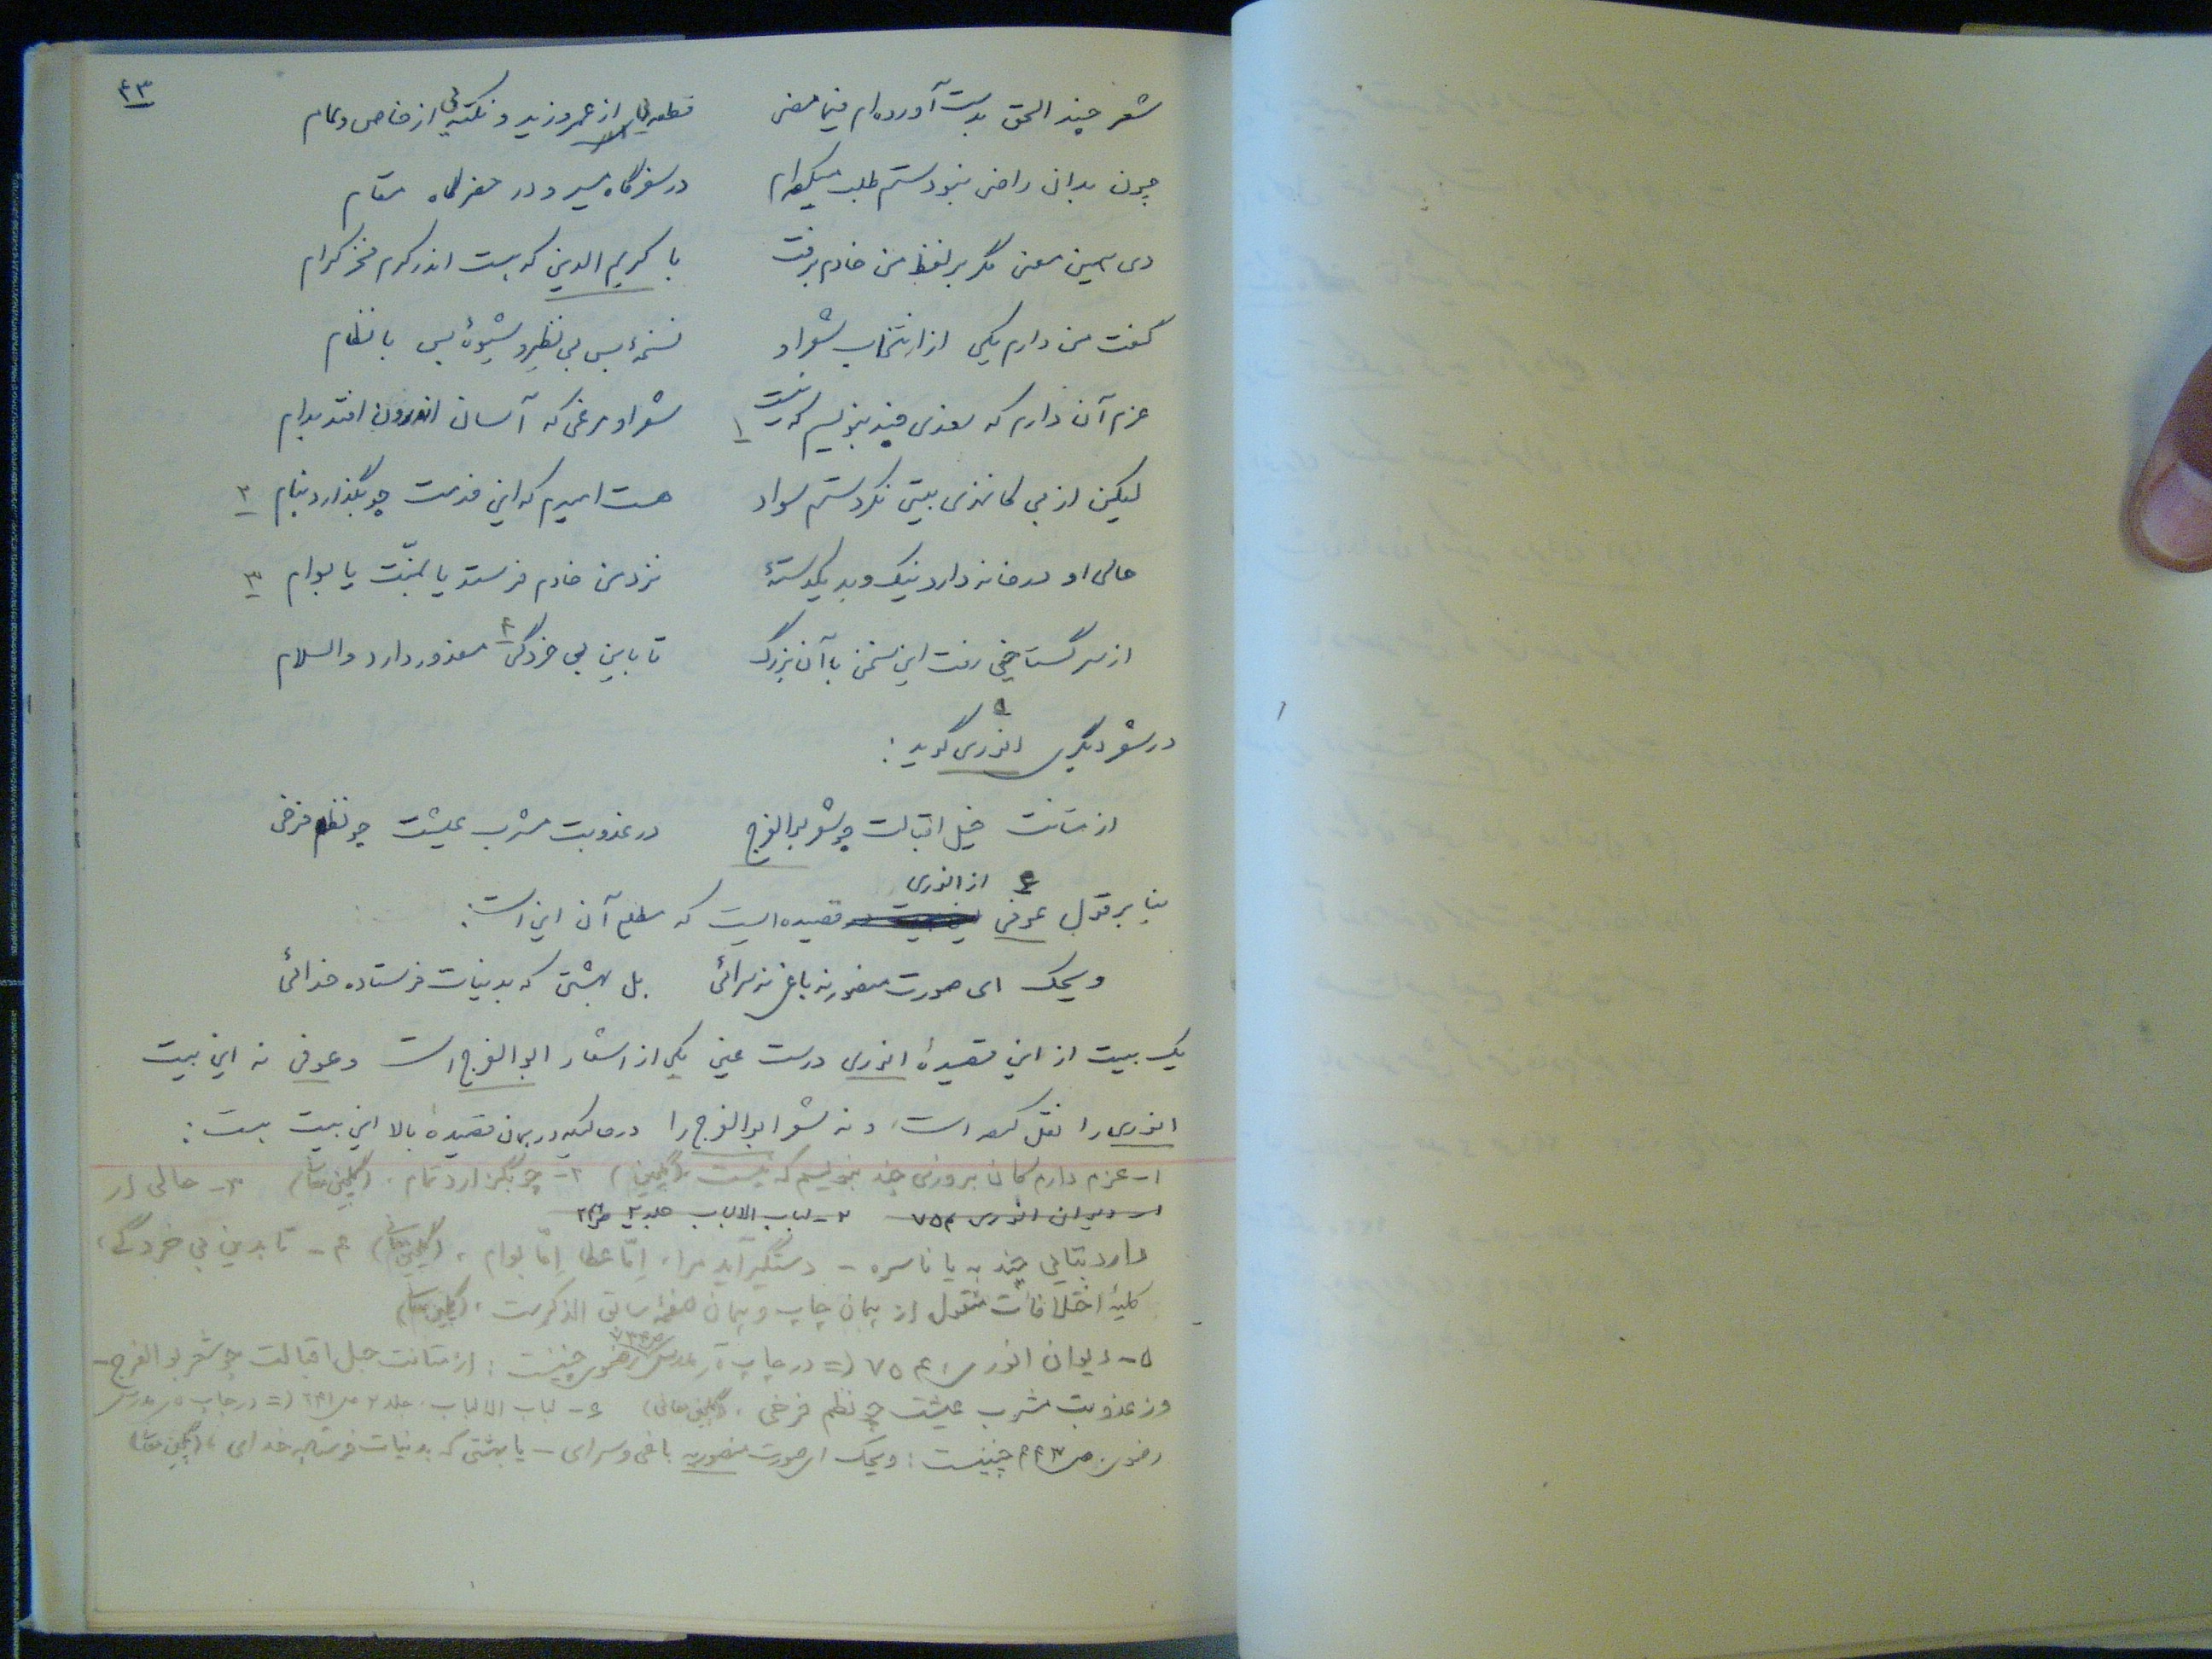 ۴۳
شعر چند الحق بدست آورده‌ام فیما مضی    قطعه‌یی از عمرو زید و نکته‌یی از خاص و عام
چون بدان راضی نبودستم طلب میکرده‌ام    در سفرگاه مسیر و در حضرگاه مقام
دی همین معنی مگر بر لفظ من خادم برفت    با کریم الدین که هست اندر کرم فخر کرام
گفت من دارم یکی از انتخاب شعر او    نسخهٔ بس بی نظیر و شیوهٔ بس با نظام
عزم آن دارم که روزی چند بنویسم که نیست ۱    شعر او مرغی که آسان اندرون افتد بدام
لیکن از بی کاغذی بیتی نکردستم سواد    هست امیدم که این خدمت چو بگذارد بنام ۲
حالی او در خانه دارد نیک و بد یکدستهٔ    نزد من خادم فرستد یا بمنّت یا بوام ۳
از سر گستاخی رفت این سخن با آن بزرگ    تا باین بی خردگی ۴ معذور دارد والسلام
در شعر دیگری انوری ۵ گوید :
از متانت خیل اقبالت چو شعر بوالفرج    در عذوبت مشرب عیشت چو نظم فرخی
بنا بر قول عوفی ۶ از انوری قصیده ایست که مطلع آن این است :
ویحک ای صورت منصوریه باغی نه سرائی    بل بهشتی که بدنیات فرستاده خدائی
یک بیت از این قصیدهٔ انوری درست عین یکی از اشعار ابوالفرج است و عوفی نه این بیت
انوری را نقل کرده است، و نه شعر ابوالفرج را در صورتیکه در همان قصیدهٔ بالا این بیت هست :
۱- عزم دارم کان بروزی چند بنویسم که نیست (گلچین) ۲- چو بگزارد تمام . (گلچین معانی) ۳- حالی ار
دیوان انوری ۷۵۴ ۲- لباب الالباب جلد ۲
دارد بتایی چند به یا ناسره - دستگیر آید مرا، اِمّا عطا اِمّا بوام ، (گلچین معانی) ۴- تا بدین بی خردگی ،
کلیهٔ اختلافات منقول از همان چاپ و همان صفحهٔ سابق الذکرست . (گلچین معانی)
۵- دیوان انوری ۷۵۴ (= در چاپ مدرس رضوی چنینست : از متانت حبل اقبالت چو شعر بوالفرج -
وز عذوبت مشرب عیشت چو نظم فرخی . (گلچین معانی) ۶- لباب الالباب . جلد ۲ (= در چاپ مدرس
رضوی چنینست : ویحک ای صورت منصوریه باغی و سرای - یا بهشتی که بدنیات فرستاد خدای ، (گلچین معانی)